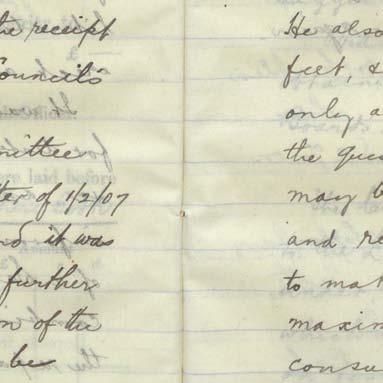 the receipt
Council's
mittee
ter of 1/2/07
and it was
further
n of the
be
He also
feet, &
only a
the ques
may b
and re
to mat
maxim
consu